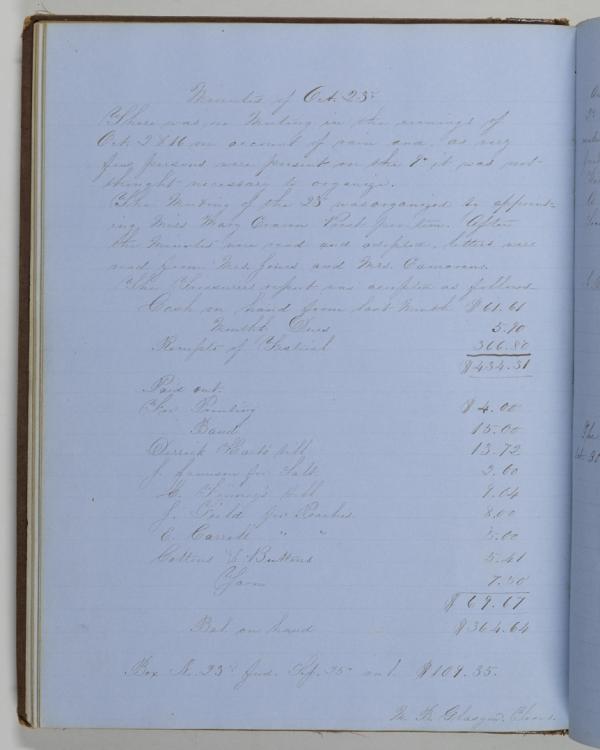 Minutes of Oct. 23d
There was no Meeting in the evenings of
Oct. 2 & 16 on account of rain and as very
few persons were present on the 9" it was not
thought necessary to organize.
The Meeting of the 23d was organized by appoint-
ing Miss Mary Craven Pres't pro-tem. After
the Minutes were read and adopted, letters were
read from Mrs. Jones and Mrs. Cameron.
The Treasurers report was adopted as follows
Cash on hand from last Month $61.61
Month's Dues 5.90
Receipts of Festival 366.80
$434.31
Paid out.
For Printing $4.00
Band 15.00
Derrick bill 13.72
J. for Salt 2.60
bill 9.04
J. Field for Peaches 8.00
E. Carroll " "
Cottons & Buttons 5.41
Yarn
$69.67
Bal. on hand $364.64
Box No. 23 Sep. 25 $109.35.
M. B. Glasgow.